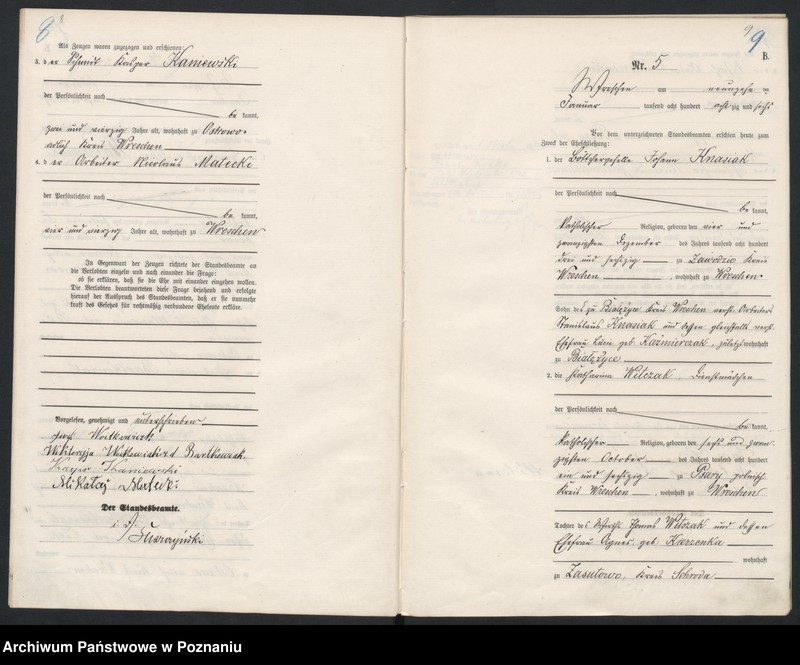 8
B.
Als Zeugen waren zugezogen und erschienen:
3. der Schmid Kasper Kamewski
der Persönlichkeit nach
be kannt,
zwei und vierzig Jahre alt, wohnhaft zu Ostrowo-
Kreis Wreschen
4. der Arbeiter Nicolaus Matecki
der Persönlichkeit nach
be kannt,
vier und vierzig Jahre alt, wohnhaft zu Wreschen
In Gegenwart der Zeugen richtete der Standesbeamte an
die Verlobten einzeln und nach einander die Frage:
ob sie erklären, daß sie die Ehe mit einander eingehen wollen.
Die Verlobten beantworteten diese Frage bejahend und erfolgte
hierauf der Ausspruch des Standesbeamten, daß er sie nunmehr
kraft des Gesetzes für rechtmäßig verbundene Eheleute erkläre.
Vorgelesen, genehmigt und unterschrieben
Kamiewski
Mikołaj Matecki
Der Standesbeamte.
9
B.
Nr. 5
Wreschen am neunzehn ten
Januar tausend acht hundert acht zig und sechs
Vor dem unterzeichneten Standesbeamten erschien heute zum
Zweck der Eheschließung:
1. der Böttchergeselle Johann Knasiak
der Persönlichkeit nach
be kannt,
katholischer Religion, geboren den vier und
zwanzigsten Dezember des Jahres tausend acht hundert
drei und sechzig zu Zawodzie Kreis
Wreschen, wohnhaft zu Wreschen
Sohn des zu Białężyce Kreis Wreschen verst. Arbeiters
Stanislaus Knasiak und dessen gleichfalls verst.
Ehefrau Lucie geb Kaźmierczak, wohnhaft
zu Białężyce
2. die Katharina Witczak, Dienstmädchen
der Persönlichkeit nach
be kannt,
katholischer Religion, geboren den sechs und zwan-
zigsten October des Jahres tausend acht hundert
ein und sechzig zu Bury polnisch
Kreis Wreschen, wohnhaft zu Wreschen
Tochter des Wirth Thomas Witczak und dessen
Ehefrau Agnes geb. Karzonka
wohnhaft
zu Zasutowo, Kreis Schroda
Archiwum Państwowe w Poznaniu